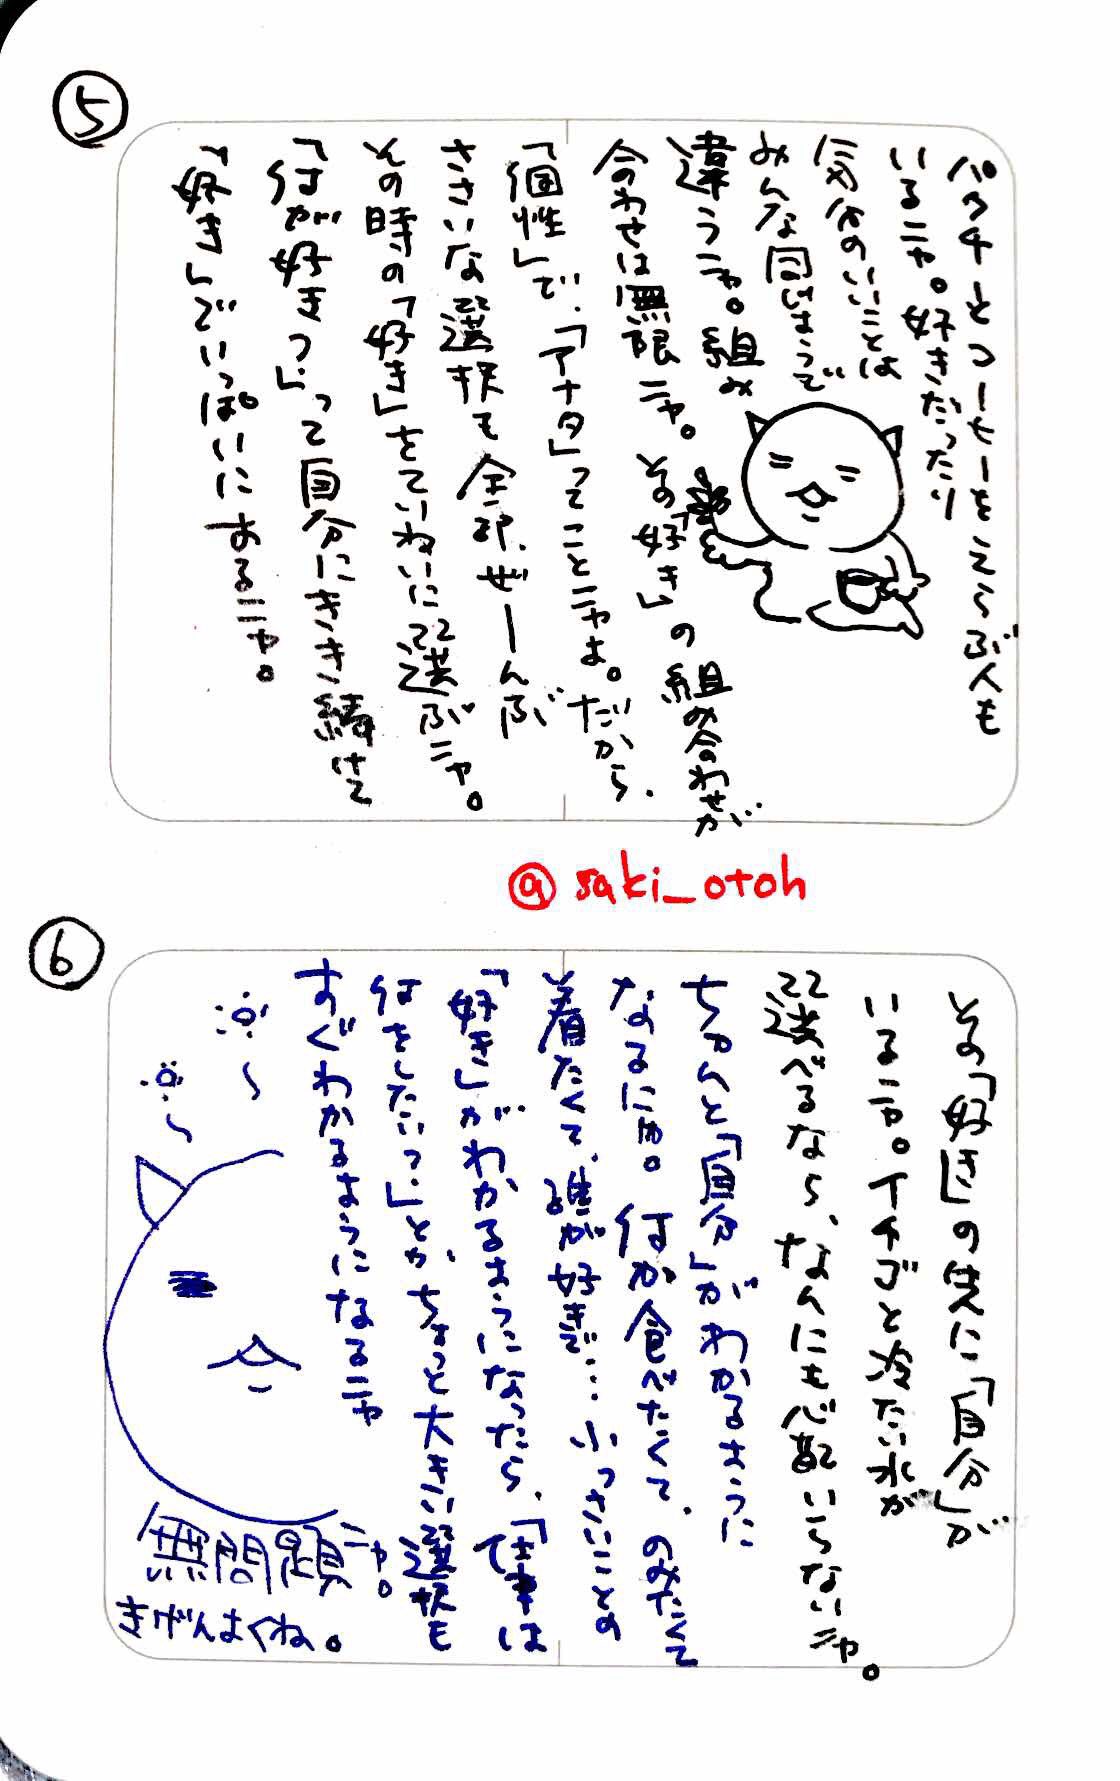 ⑤
パクチーとコーヒーをえらぶ人も
いるニャ。好きだったり
気分のいいことは
みんな同じようで
違うニャ。組み
合わせは無限ニャ。その「好き」の組み合わせが
「個性」で、「アナタ」ってことニャよ。だから、
ささいな選択も全部、ぜーんぶ
その時の「好き」をていねいに選ぶニャ。
「何が好き?」って自分にきき続けて
「好き」でいっぱいにするニャ。
@saki_otoh
⑥
その「好き」の先に「自分」が
いるニャ。イチゴと冷たい水が
選べるなら、なんにも心配いらないニャ。
ちゃんと「自分」がわかるように
なるにゅ。何か食べたくて、のみたくて
着たくて、誰が好きで…小っさいことの
「好き」がわかるようになったら、「仕事は
何をしたい?」とか、ちょっと大きい選択も
すぐわかるようになるニャ
無問題ニャ。
きげんよくね。